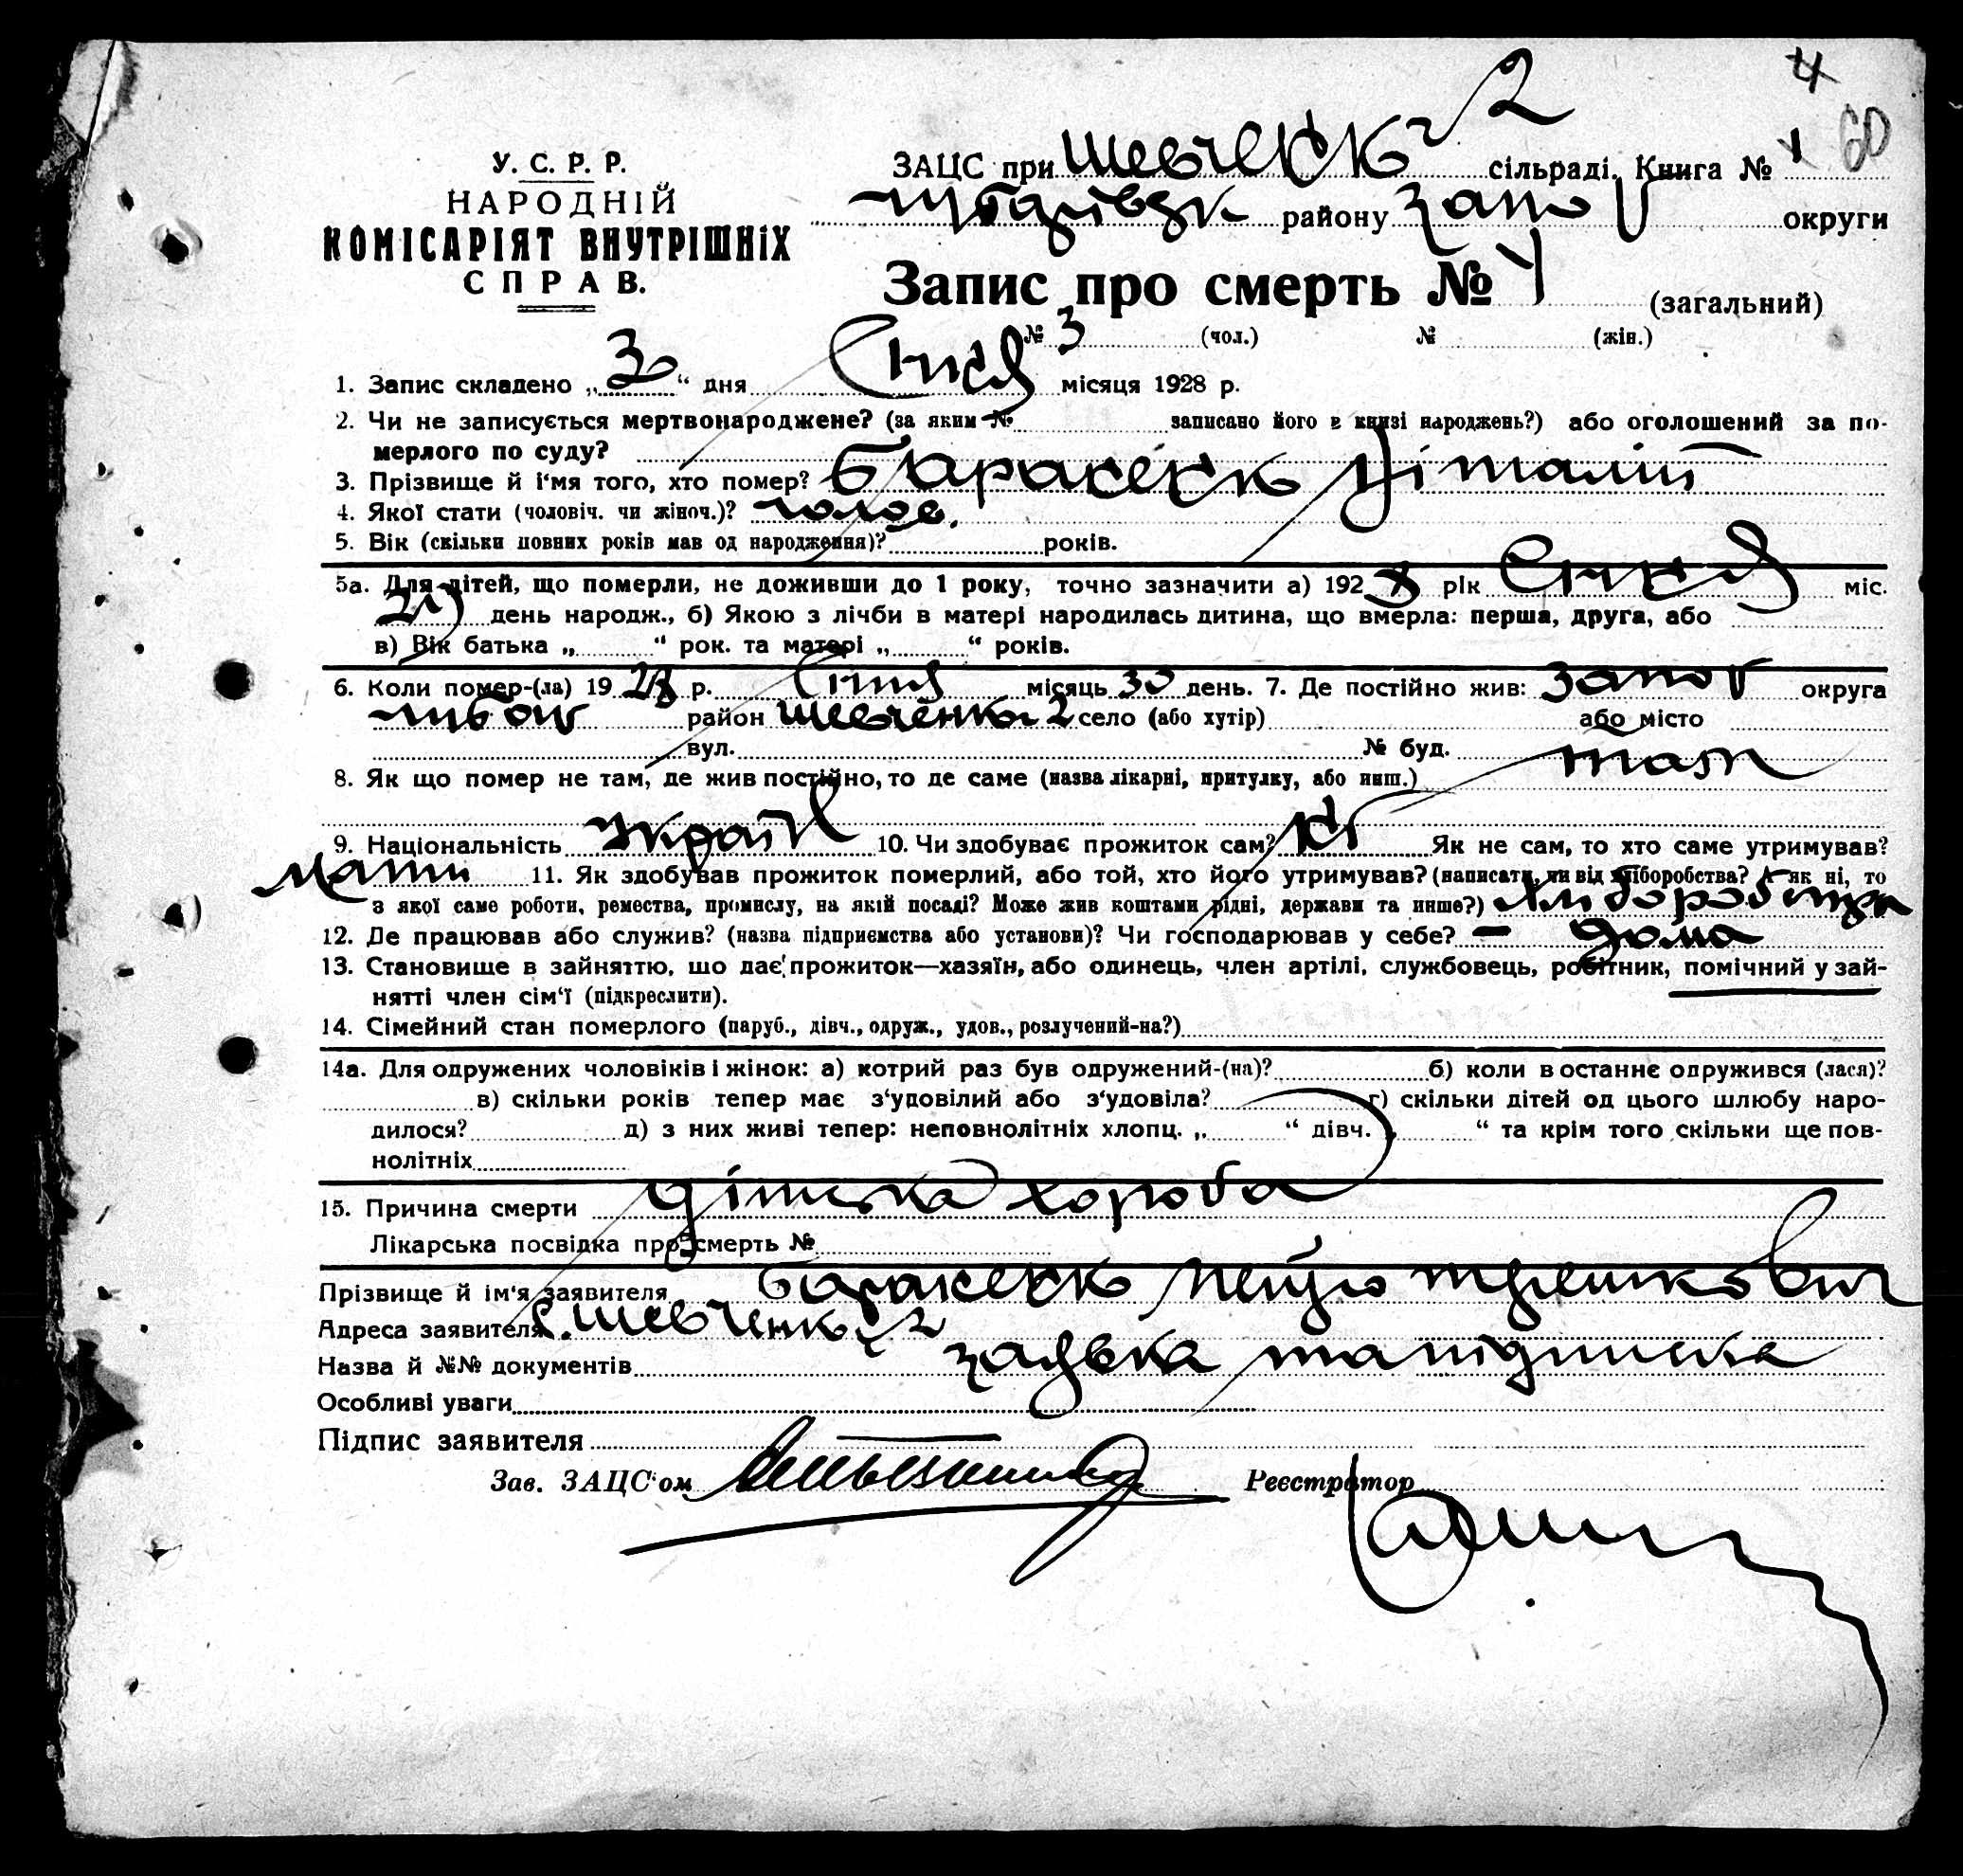 4
60
У. С. Р. Р.
НАРОДНІЙ
КОМІСАРІЯТ ВНУТРІШНІХ
СПРАВ.
ЗАЦС при Шевченк 2 сільраді. Книга № 1
району Запор округи
Запис про смерть № 4 (загальний)
№ 3 (чол.) № (жін.)
1. Запис складено „30“ дня Січня місяця 1928 р.
2. Чи не записується мертвонароджене? (за яким № записано його в книзі народжень?) або оголошений за по-
мерлого по суду?
3. Прізвище й і'мя того, хто помер? Віталій
4. Якої стати (чоловіч. чи жіноч.)? чолов.
5. Вік (скільки повних років мав од народження)? років.
5а. Для дітей, що померли, не доживши до 1 року, точно зазначити а) 1928 рік Січня міс.
день народж., б) Якою з лічби в матері народилась дитина, що вмерла: перша, друга, або
в) Вік батька „ “ рок. та матері „ “ років.
6. Коли помер-(ла) 1928 р. Січня місяць 30 день. 7. Де постійно жив: Запор округа
район Шевченко 2 село (або хутір) або місто
вул. № буд.
8. Як що помер не там, де жив постійно, то де саме (назва лікарні, притулку, або инш.) там
9. Національність Україн 10. Чи здобуває прожиток сам? ні Як не сам, то хто саме утримував?
Мати 11. Як здобував прожиток померлий, або той, хто його утримував? (написати, чи від хліборобства? А як ні, то
з якої саме роботи, ремества, промислу, на якій посаді? Може жив коштами рідні, держави та инше?)
12. Де працював або служив? (назва підприємства або установи)? Чи господарював у себе? – дома
13. Становище в зайняттю, що дає прожиток—хазяїн, або одинець, член артілі, службовець, робітник, помічний у зай-
нятті член сім'ї (підкреслити).
14. Сімейний стан померлого (паруб., дівч., одруж., удов., розлучений-на?)
14а. Для одружених чоловіків і жінок: а) котрий раз був одружений-(на)? б) коли в останнє одружився (лася)?
в) скільки років тепер має з'удовілий або з'удовіла? г) скільки дітей од цього шлюбу наро-
дилося? д) з них живі тепер: неповнолітніх хлопц. „ “ дівч. „ “ та крім того скільки ще пов-
нолітніх
15. Причина смерти дітська хороба
Лікарська посвідка про смерть №
Прізвище й ім'я заявителя Петро
Адреса заявителя с. Шевченко 2
Назва й №№ документів заявка та підписка
Особливі уваги
Підпис заявителя
Зав. ЗАЦС'ом
Реєстратор